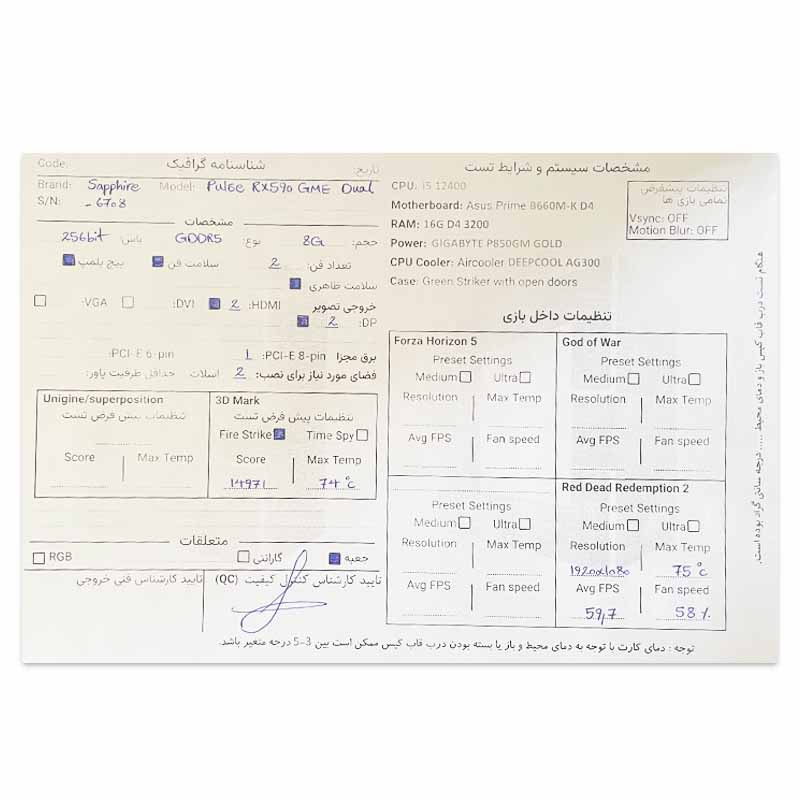 شناسنامه گرافیک
Code:
تاریخ:
Brand: Sapphire Model: Pulse RX590 GME Dual
S/N: -6708
مشخصات
حجم: 8G نوع: GDDR5 باس: 256bit
تعداد فن: 2 سلامت فن پیچ پلمپ
سلامت ظاهری
خروجی تصویر HDMI: 2 DVI: VGA:
DP: 2
برق مجزا PCI-E 8-pin: 1 PCI-E 6-pin:
فضای مورد نیاز برای نصب: 2 اسلات حداقل ظرفیت پاور:
Unigine/superposition
تنظیمات پیش فرض تست
Score Max Temp
3D Mark
تنظیمات پیش فرض تست
Fire Strike Time Spy
Score Max Temp
14971 74°c
متعلقات
جعبه گارانتی RGB
تایید کارشناس کنترل کیفیت (QC)
تایید کارشناس فنی خروجی
مشخصات سیستم و شرایط تست
CPU: i5 12400
Motherboard: Asus Prime B660M-K D4
RAM: 16G D4 3200
Power: GIGABYTE P850GM GOLD
CPU Cooler: Aircooler DEEPCOOL AG300
Case: Green Striker with open doors
تنظیمات پیشفرض
تمامی بازی ها
Vsync: OFF
Motion Blur: OFF
تنظیمات داخل بازی
Forza Horizon 5
Preset Settings
Medium Ultra
Resolution Max Temp
Avg FPS Fan speed
God of War
Preset Settings
Medium Ultra
Resolution Max Temp
Avg FPS Fan speed
Preset Settings
Medium Ultra
Resolution Max Temp
Avg FPS Fan speed
Red Dead Redemption 2
Preset Settings
Medium Ultra
Resolution Max Temp
1920x1080 75°c
Avg FPS Fan speed
59,7 58%
توجه : دمای کارت با توجه به دمای محیط و باز یا بسته بودن درب قاب کیس ممکن است بین 3-5 درجه متغیر باشد.
هنگام تست درب قاب کیس باز و دمای محیط ..... درجه سانتی گراد بوده است.